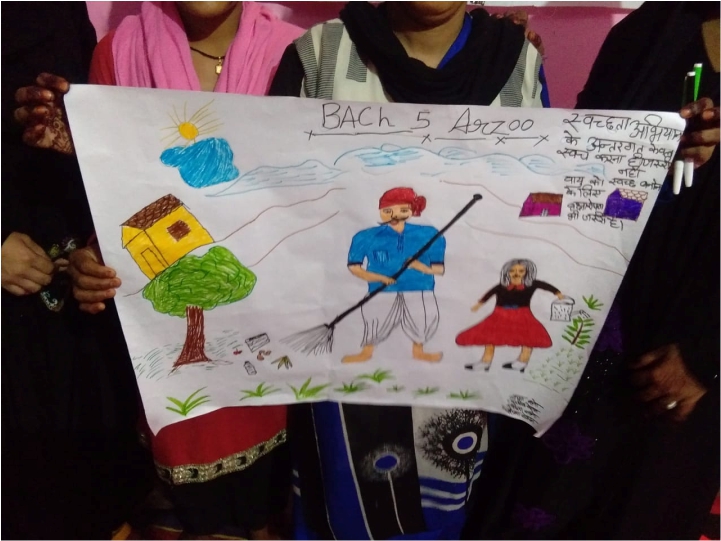 BACh 5 Arzoo
स्वच्छता अभियान
के अन्तरगत केवल
स्वच्छ करना ही
नही
वायु को स्वच्छ
के लिए
भी जरूरी है।